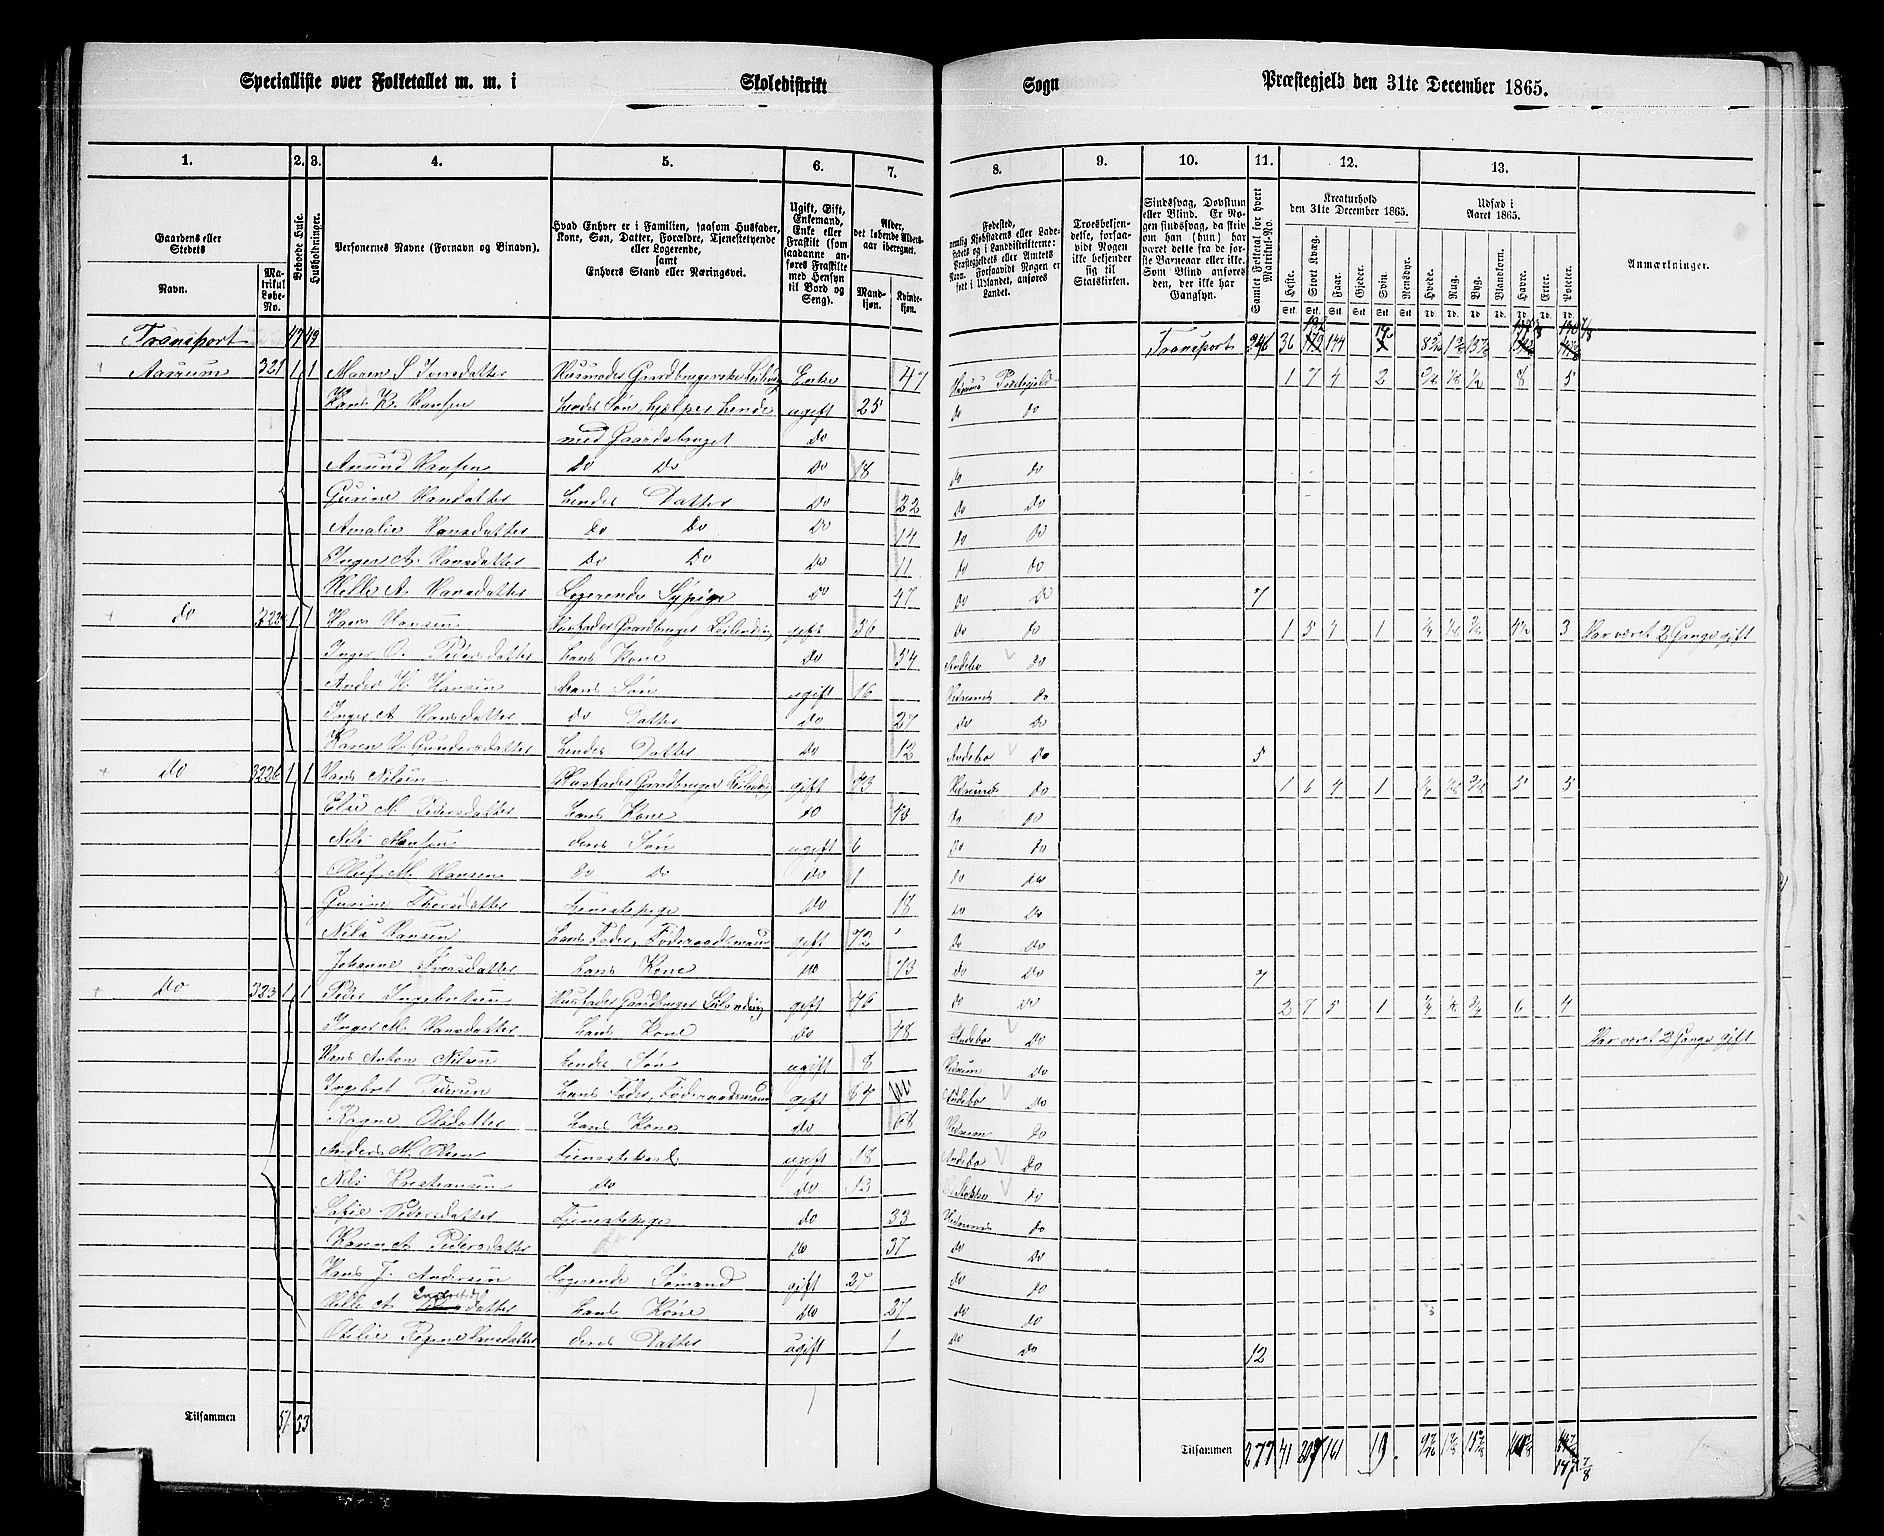 Specialliste over Folketallet m. m. i Skoledistrikt Sogn Præstegjeld den 31te December 1865.
1. 2. 3. 4. 5. 6. 7. 8. 9. 10. 11. 12. 13.
Gaardens eller Stedets
Navn.
Matrikul Løbe-No.
Beboede Huse.
Husholdninger.
Personernes Navne (Fornavn og Binavn).
Hvad Enhver er i Familien, saasom Husfader, Kone, Søn, Datter, Forældre, Tjenestetyende eller Logerende, samt Enhvers Stand eller Næringsvei.
Ugift, Gift, Enkemand, Enke eller Fraskilt (som saadanne anføres Fraskilte med Hensyn til Bord og Seng).
Alder, det løbende Aldersaar iberegnet.
Mandkjøn. Kvindekjøn.
Fødested,
Troesbekjendelse, forsaavidt Nogen ikke bekjender sig til Statskirken.
Sindssvag, Døvstum eller Blind.
Samlet Folketal for hvert Matrikul-No.
Kreaturhold den 31te December 1865.
Heste. Stort Kvæg. Faar. Gjeder. Sviin. Rensdyr.
Udsæd i Aaret 1865.
Hvede. Rug. Byg. Blandkorn. Havre. Erter. Poteter.
Anmærkninger.
Transport 47 49 Transport 246 36 144
Aasrum 321 1 1 Maren S Iversdatter Enke 47 1 7 4 2 8 5
Hans K. Hansen hendes Søn, hjælper hende ugift 25 do do
med Gaardsbruget do
Amund Hansen do do do 18 do do
Gurine Hansdatter hendes Datter do 22 do do
Amalie Hansdatter do do do 14 do do
Inger A. Hansdatter do do do 11 do do
Helle A. Hansdatter Logerende Sypige do 47 do do 7
do 322a 1 1 Hans Hansen Husfader Gaardbruger Leilending gift 36 do do 1 5 4 1 3 Har været 2 Gange gift
Inger O. Pedersdatter hans Kone do 54 Andebo do
Anders H. Hansen hans Søn ugift 16 Hedrums do
Inger A Hansdatter do Datter do 27 do do
Karen H. Gundersdatter hendes Datter do 12 Andebo do 5
do 322b 1 1 Hans Nilsen Husfader Gaardbruger Leilending gift 43 Hedrums do 1 6 4 1 5 5
Else M. Pedersdatter hans Kone do 43 do do
Nils Hansen deres Søn ugift 6 do do
Oluf M. Hansen do do do 1 do do
Gurine Thorsdatter Tjenestepige do 18 do do
Nils Hansen hans Fader, Føderaadsmand gift 72 do do
Johanne Iversdatter hans Kone do 73 do do 7
do 323 1 1 Peder Ingebretsen Husfader Gaardbruger Leilending gift 46 do do 2 7 5 1 6 4
Inger M. Hansdatter hans Kone do 48 Andebo do Har været 2 Gange gift
Hans Anton Nilsen hendes Søn ugift 8 Hedrum do
Ingebret Pedersen hans Fader, Føderaadsmand gift 69 Andebo do
Ragne Olsdatter hans Kone do 68 Hedrum do
Anders M. Olsen Tjenestekarl ugift 18 Andebo do
Nils Kristiansen do do 13 Stokke do
Sofie Pedersdatter Tjenestepige do 33 Hedrums do
Karen A Pedersdatter do 37 do do
Hans J. Andersen Logerende Sømand gift 27 do do
Helle A datter hans Kone do 27 do do
Otelie Regine Hansdatter deres Datter ugift 1 do do 12
Tilsammen 51 53 Tilsammen 277 41 207 161 19